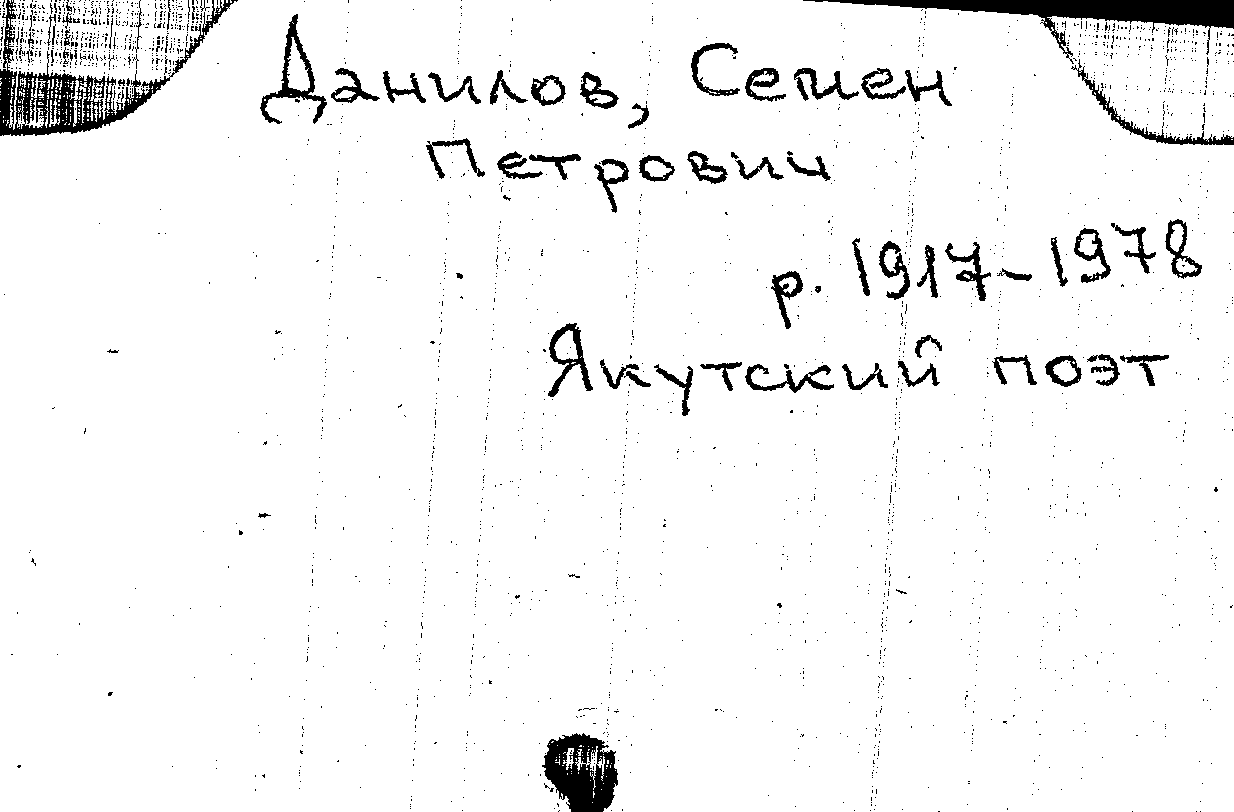 Данилов, Семен
Петрович
р. 1917-1978
Якутский поэт